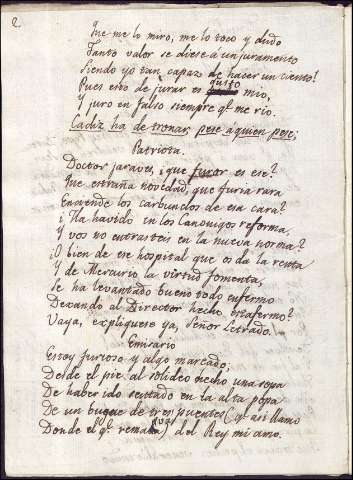 2
Que me lo miro, me lo toco y dudo
Tanto valor se diese á un juramento
Siendo yo tan capaz de hacer un ciento!
Pues esto de jurar es gusto mio,
Y juro en falso siempre qᵉ me rio.
Cadiz ha de tronar, pese á quien pese.
Patriota.
Doctor jaraves, ¡que furor es ese?
Que estraña novedad, que furia rara
Enciende los carbunclos de esa cara?
¿Ha havido en los Canonigos reforma,
Y vos no entrasteis en la nueva norma?
¿O bien de ese hospital que os da la renta
Y de Mercurio la virtud fomenta,
Se ha levantado bueno todo enfermo
Dexando al Director hecho estafermo?
Vaya, expliquese ya, Señor Letrado.
Emisario
Estoy furioso y algo mareado,
Desde el pie al solideo hecho una sopa
De haber ido sentado en la alta popa
De un buque de tres puentes (qᵉ asi llamo
Donde el qᵉ rema ) del Rey mi amo.